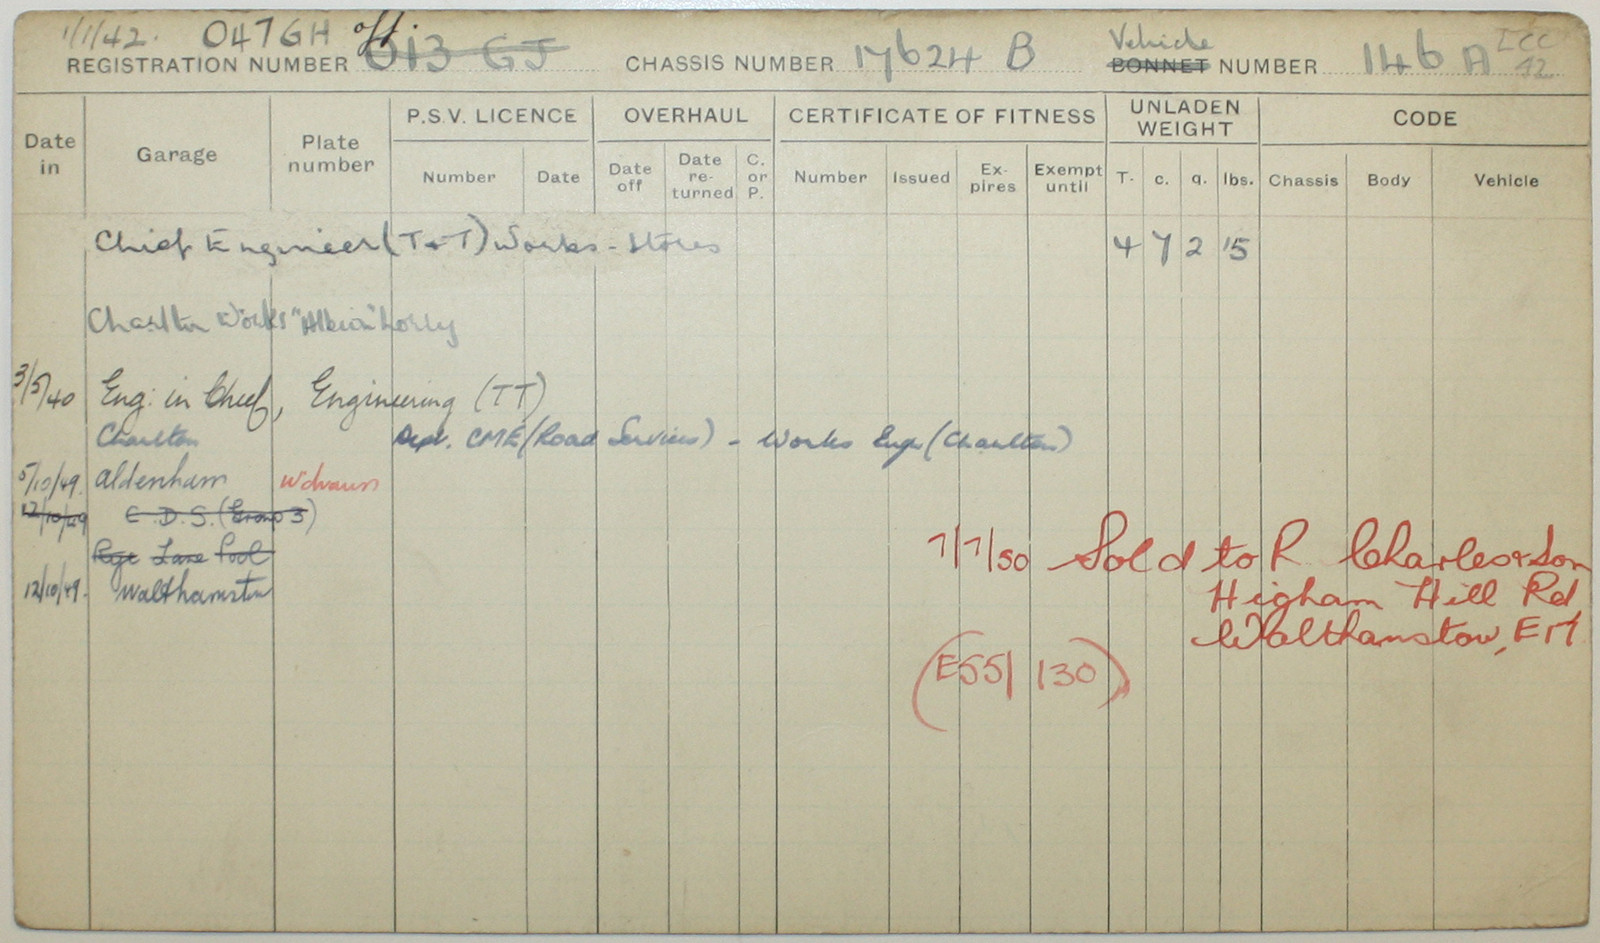 1/1/42. 047GH off.
REGISTRATION NUMBER 013 GJ CHASSIS NUMBER 17624 B Vehicle BONNET NUMBER 146 A
Date in Garage Plate number P.S.V. LICENCE OVERHAUL CERTIFICATE OF FITNESS UNLADEN WEIGHT CODE
Number Date Date off Date re-turned C. or P. Number Issued Ex-pires Exempt until T. c. q. lbs. Chassis Body Vehicle
Chief Engineer (T+T) Works - Stores 4 7 2 15
Charlton Works "Albion" Lorry
3/5/40 Eng: in Chief, Engineering (TT)
Charlton Dept. CME (Road Services) - Works Engr (Charlton)
5/10/49. Aldenham Wdrawn
12/10/49 C.D.S. (Group 3)
Rye Lane Pool
12/10/49. Walthamstow
7/7/50 Sold to R Charles & Son
Higham Hill Rd
Walthamstow, E17
(E55/130)